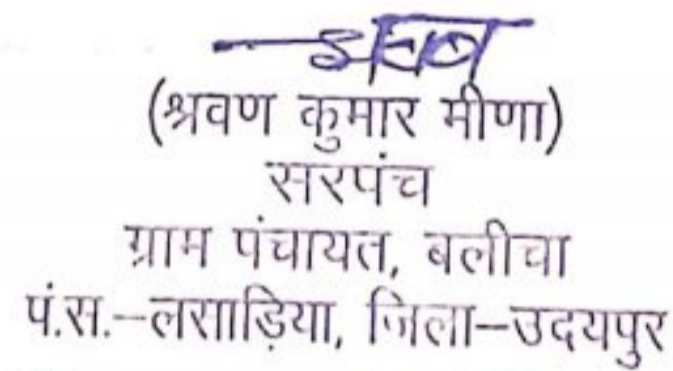 (श्रवण कुमार मीणा)
सरपंच
ग्राम पंचायत, बलीचा
पं.स.–लसाड़िया, जिला–उदयपुर